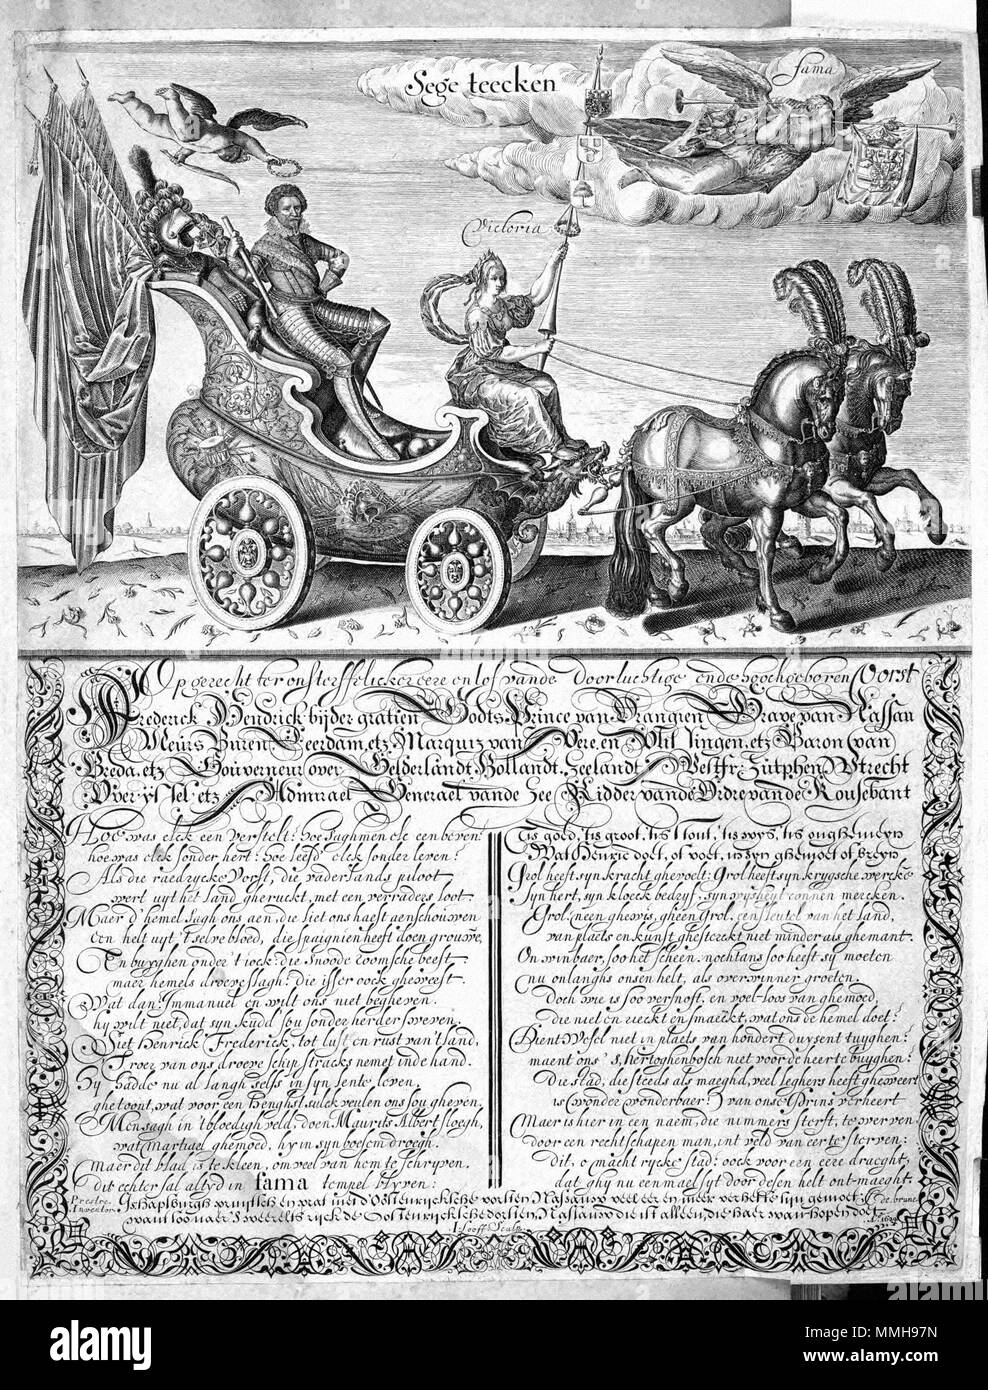 Sege teecken
fama
Victoria
Opgerecht ter onsterffelicker eere en lof vande Doorluchtige ende hoochgeboren Vorst
Frederick Hendrick bij der gratien Godts Prince van Orangien Grave van Nassau
Meurs Buren Leerdam, etz Marquiz van Vere, en Vlissingen, etz Baron van
Breda, etz Gouverneur over Gelderlandt Hollandt, Zeelandt Westfr: Zutphen Vtrecht
Overijssel etz Admirael Generael vande Zee Ridder vande Ordre vande Kousebant
Hoe was elck een verstelt: hoe sagh men elc een beven:
hoe was elck sonder hert: hoe leefd' elck sonder leven!
Als die raedrycke Vorst, die vaderlands piloot
wert uyt het land gheruckt, met een verraders loot.
Maer d'hemel sagh ons aen, die liet ons haest aenschouwen
Een helt uyt 't selve bloed, die Spaignien heeft doen grouwe,
En buyghen onder 't iock: die Snoode roomsche beest
maer hemels droeve slagh: die isser oock gheweest.
Wat dan? Immanuel en wilt ons niet begheven.
hy wilt niet, dat syn kudd' sou sonder herder sweven.
Siet Henrick Frederick, tot lust en rust van 't land,
T'roer van ons droeve schip stracks nemet inde hand.
Hy hadde nu al langh selfs in syn lente leven,
ghetoont, wat voor een Henghst sulck veulen ons sou gheven.
Men sagh in t bloedigh veld, doen Maurits Albert sloegh,
wat martiael ghemoed, hy in syn boesem droegh.
Maer dit blad is te kleen, om veel van hem te schryven,
dit echter sal altyd in fama tempel blyven:
Tis goed, 'tis groot, tis stout, 'tis wys, tis onghemeyn
Wat Henric doet, of voet, in syn ghemoet of breyn
Grol heeft syn kracht ghevoelt: Grol heeft syn krygsche wercke
Syn hert, syn kloeck bedryf, syn wysheyt connen mercken.
Grol, gheen ghewis, gheen Grol, een sleutel van het land,
van plaets en kunst ghesterckt niet minder als ghemant.
On winbaer, soo het scheen, nochtans soo heeft sy moeten
nu onlanghs onsen helt, als overwinner groeten.
Doch wie is soo versnoft, en voel-loos van ghemoed,
die niet en rieckt en smaeckt, wat ons de hemel doet?
Dient Wesel niet in plaets van honderd duysent tuyghen:
maent ons 's, hertoghenbosch niet voor de heer te buyghen?
Die stad, die steeds als maeghd, veel leghers heeft gheweert
is (wonder wonderbaer!) van onse Prins verheert
Maer is hier in een naem, die nimmers sterft, te werven
door een rechtschapen man, int veld van eer te sterven:
dit, o macht rycke stad: oock voor een eere draeght,
dat ghy nu eenmael syt door desen helt ont-maeght.
Inventor.
I. Looff Sculp.
de brune
a
alamy stock photo
MMH97N
www.alamy.com